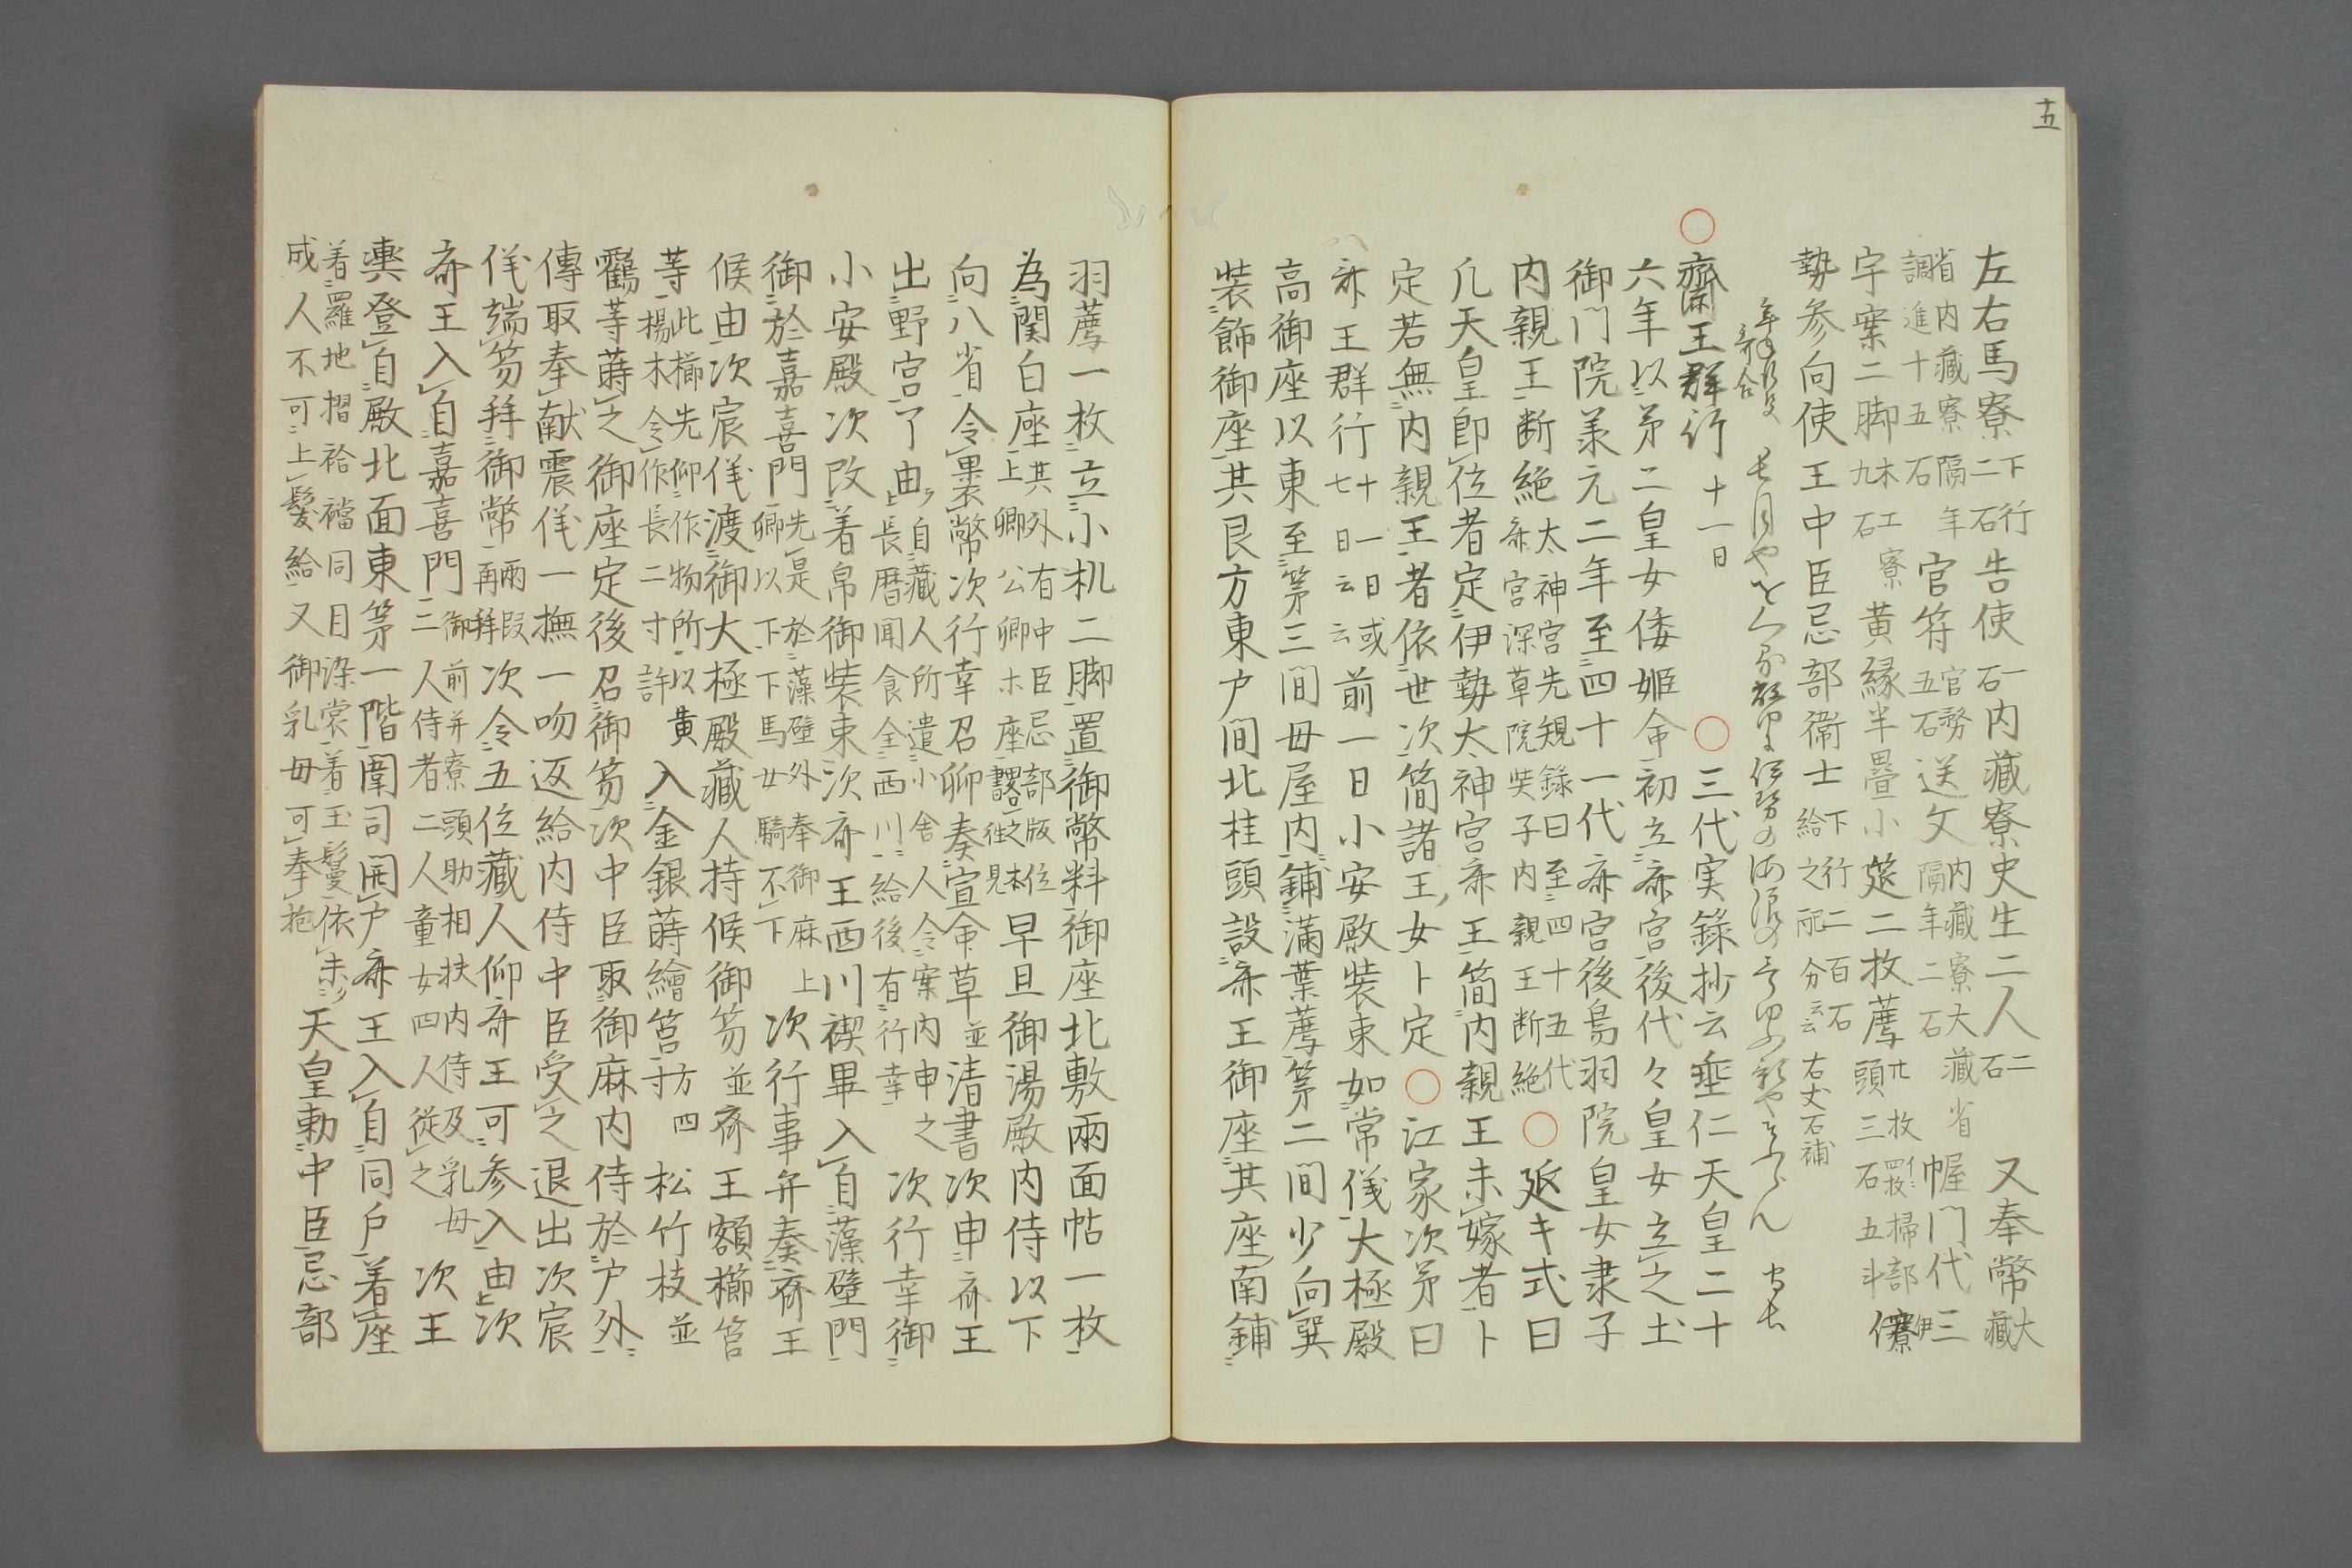 十五
左右馬寮下行二石告使一石内藏寮史生二人二石 又奉幣大藏
省内藏寮隔年調進十五石官符官務五石送文内藏寮大藏省隔年二石幄門代三
宇案二脚木工寮九石黄縁半疊小莚二枚薦廿枚掃部寮頭三石五斗
勢参向使王中臣忌部衞士下行二百石給之配分云云右丈石補
齋王群行十一日 ○三代実録抄云垂仁天皇二十
六年以第二皇女倭姫命初立斎宮後代々皇女立之土
御門院羕元二年至四十一代斎宮後鳥羽院皇女隶子
内親王断絶太神宮先規録曰至四十五代斎宮深草院奘子内親王断絶○延キ式曰
凡天皇即位者定伊勢大神宮斎王簡内親王未嫁者卜
定若無内親王者依世次簡諸王女卜定○江家次第曰
斎王群行十一日或七日云云前一日小安殿装束如常儀大極殿
高御座以東至第三間母屋内鋪滿葉薦第二間少向巽
装飾御座其艮方東户間北桂頭設斎王御座其座南鋪
羽薦一枚立小机二脚置御幣料御座北敷兩面帖一枚
為関白座其外有中臣忌部版位上卿公卿ホ座早旦御湯殿内侍以下
向八省令裹幣次行幸召卿奏宣命草並清書次申斎王
出野宮了由自藏人所遣小舎人令案内申之長暦聞食全西川給後有行幸次行幸御
小安殿次改着帛御装束次斎王西川禊畢入自藻壁門
御於嘉喜門先是於藻壁外奉御麻上卿以下下馬女騎不下次行事弁奏斎王
候由次宸儀渡御大極殿藏人持候御笏並斎王額櫛筥
等此櫛先仰作物所以黄楊木令作長二寸許入金銀蒔繪筥方四寸松竹枝並
鸖等蒔之御座定後召御笏次中臣取御麻内侍於户外
傳取奉献震儀一撫一吻返給内侍中臣受之退出次宸
儀端笏拜御幣兩段再拜次令五位藏人仰斎王可参入由次
斎王入自嘉喜門御前并寮頭助相扶内侍及乳母三人侍者二人童女四人従之次王
輿登自殿北面東第一階闈司開户斎王入自同戸着座
着羅地摺袷襠同目染裳着玉鬘依未成人不可上髪給又御乳母可奉抱天皇勅中臣忌部